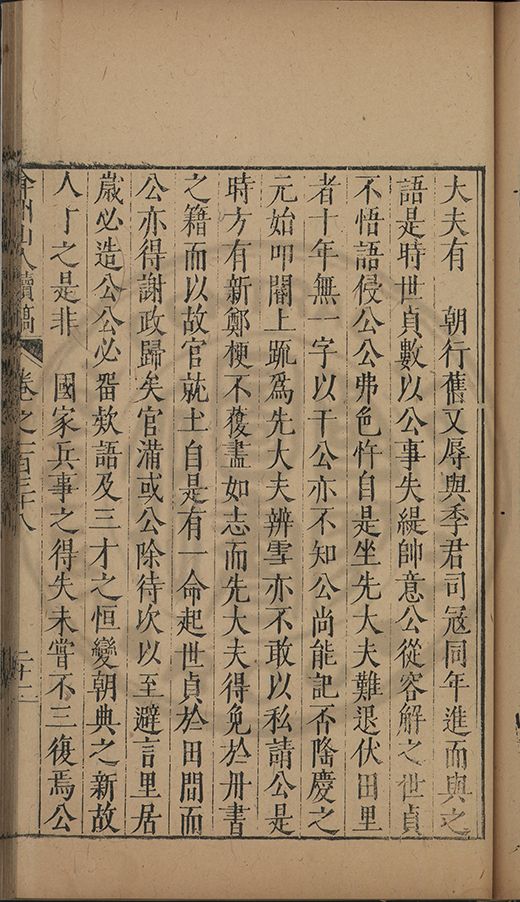 大夫有　朝行舊又辱與季君司寇同年進而與之
語是時世貞數以公事失緹帥意公從容解之世貞
不悟語侵公公弗色忤自是坐先大夫難退伏田里
者十年無一字以干公亦不知公尚能記否隆慶之
元始叩闕上疏爲先大夫辨雪亦不敢以私請公是
時方有新鄭梗不獲盡如志而先大夫得免於丹書
之籍而以故官就土自是有一命起世貞於田間而
公亦得謝政歸矣官滿或公除待次以至避言里居
歲必造公公必留欵語及三才之恒變朝典之新故
人丁之是非　國家兵事之得失未嘗不三復焉公
弇州山人續稿　卷之一百三十八　二十二